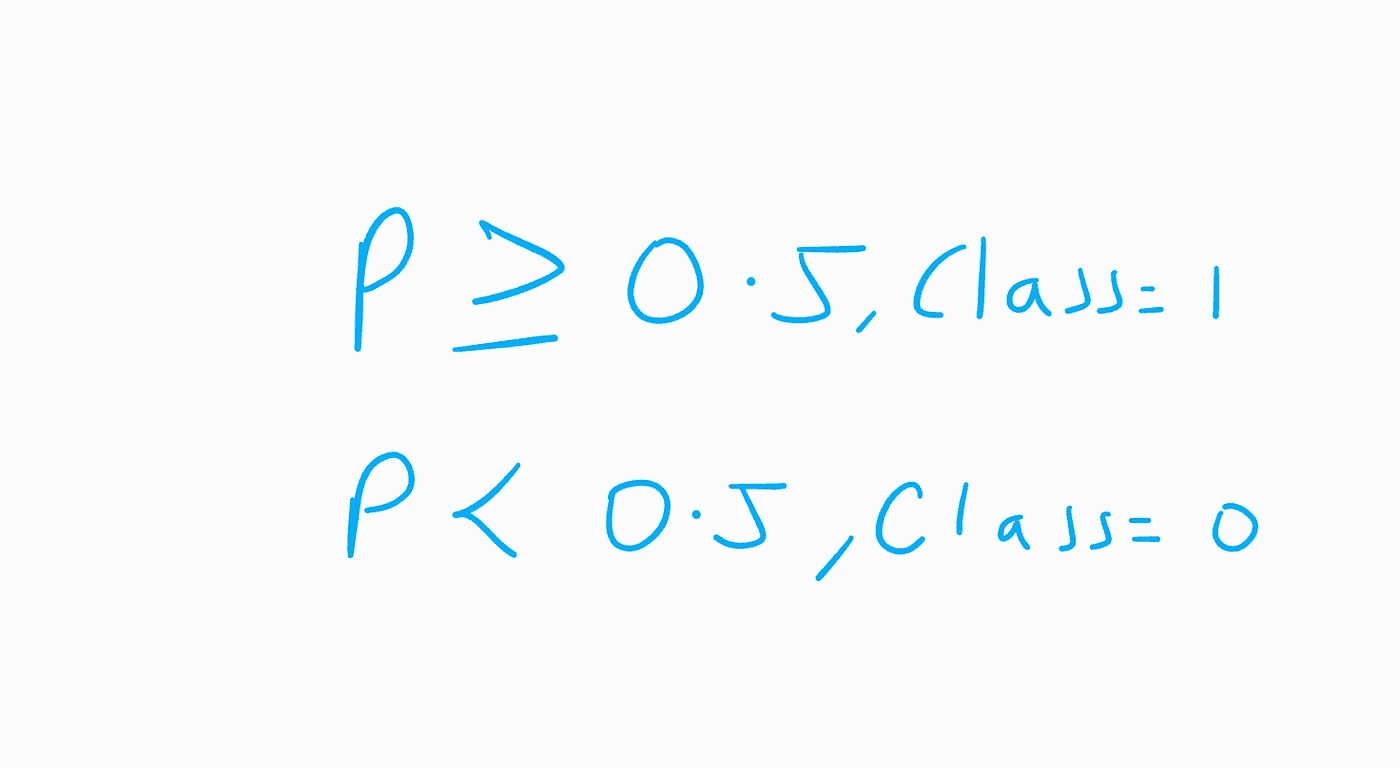 P ≥ 0.5, Class= 1
P < 0.5, Class= 0